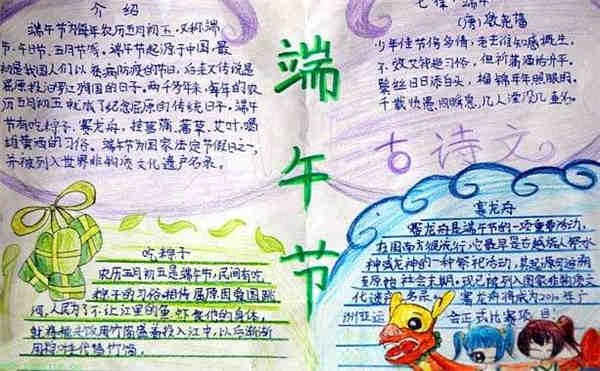 介绍
端午节为每年农历五月初五,又称端
节、午日节、五月节等。端午节起源于中国,最
初是我国人们以祛病防疫的节日,后来又传说是
屈原投汨罗江殉国的日子。两千多年来,每年的农
历五月初五就成了纪念屈原的传统日子。端午
节有吃粽子、赛龙舟、挂菖蒲、蒿草、艾叶,喝
雄黄酒的习俗。端午节为国家法定节假日之一,
并被列入世界非物质文化遗产名录。
端
午
节
七律·端午
(唐)殷尧藩
少年佳节倍多情,老去谁知感慨生。
不效艾符趋习俗,但祈蒲酒话升平。
鬓丝日日添白头,榴锦年年照眼明。
千载贤愚同瞬息,几人湮没几垂名。
古诗文
吃粽子
农历五月初五是端午节,民间有吃
粽子的习俗,相传屈原因爱国跳
河,人民为了不让江里的鱼虾食他的身体,
用粽叶代替竹筒。
赛龙舟
赛龙舟是端午节的一项重要活动,
在国南方很流行,它最早是古越族人祭水
神或龙神的一种祭祀活动,其起源可追溯
至原始社会末期。现已被列入国家非物质文
化遗产名录。赛龙舟将成为2010年广
州亚运会正式比赛项目!